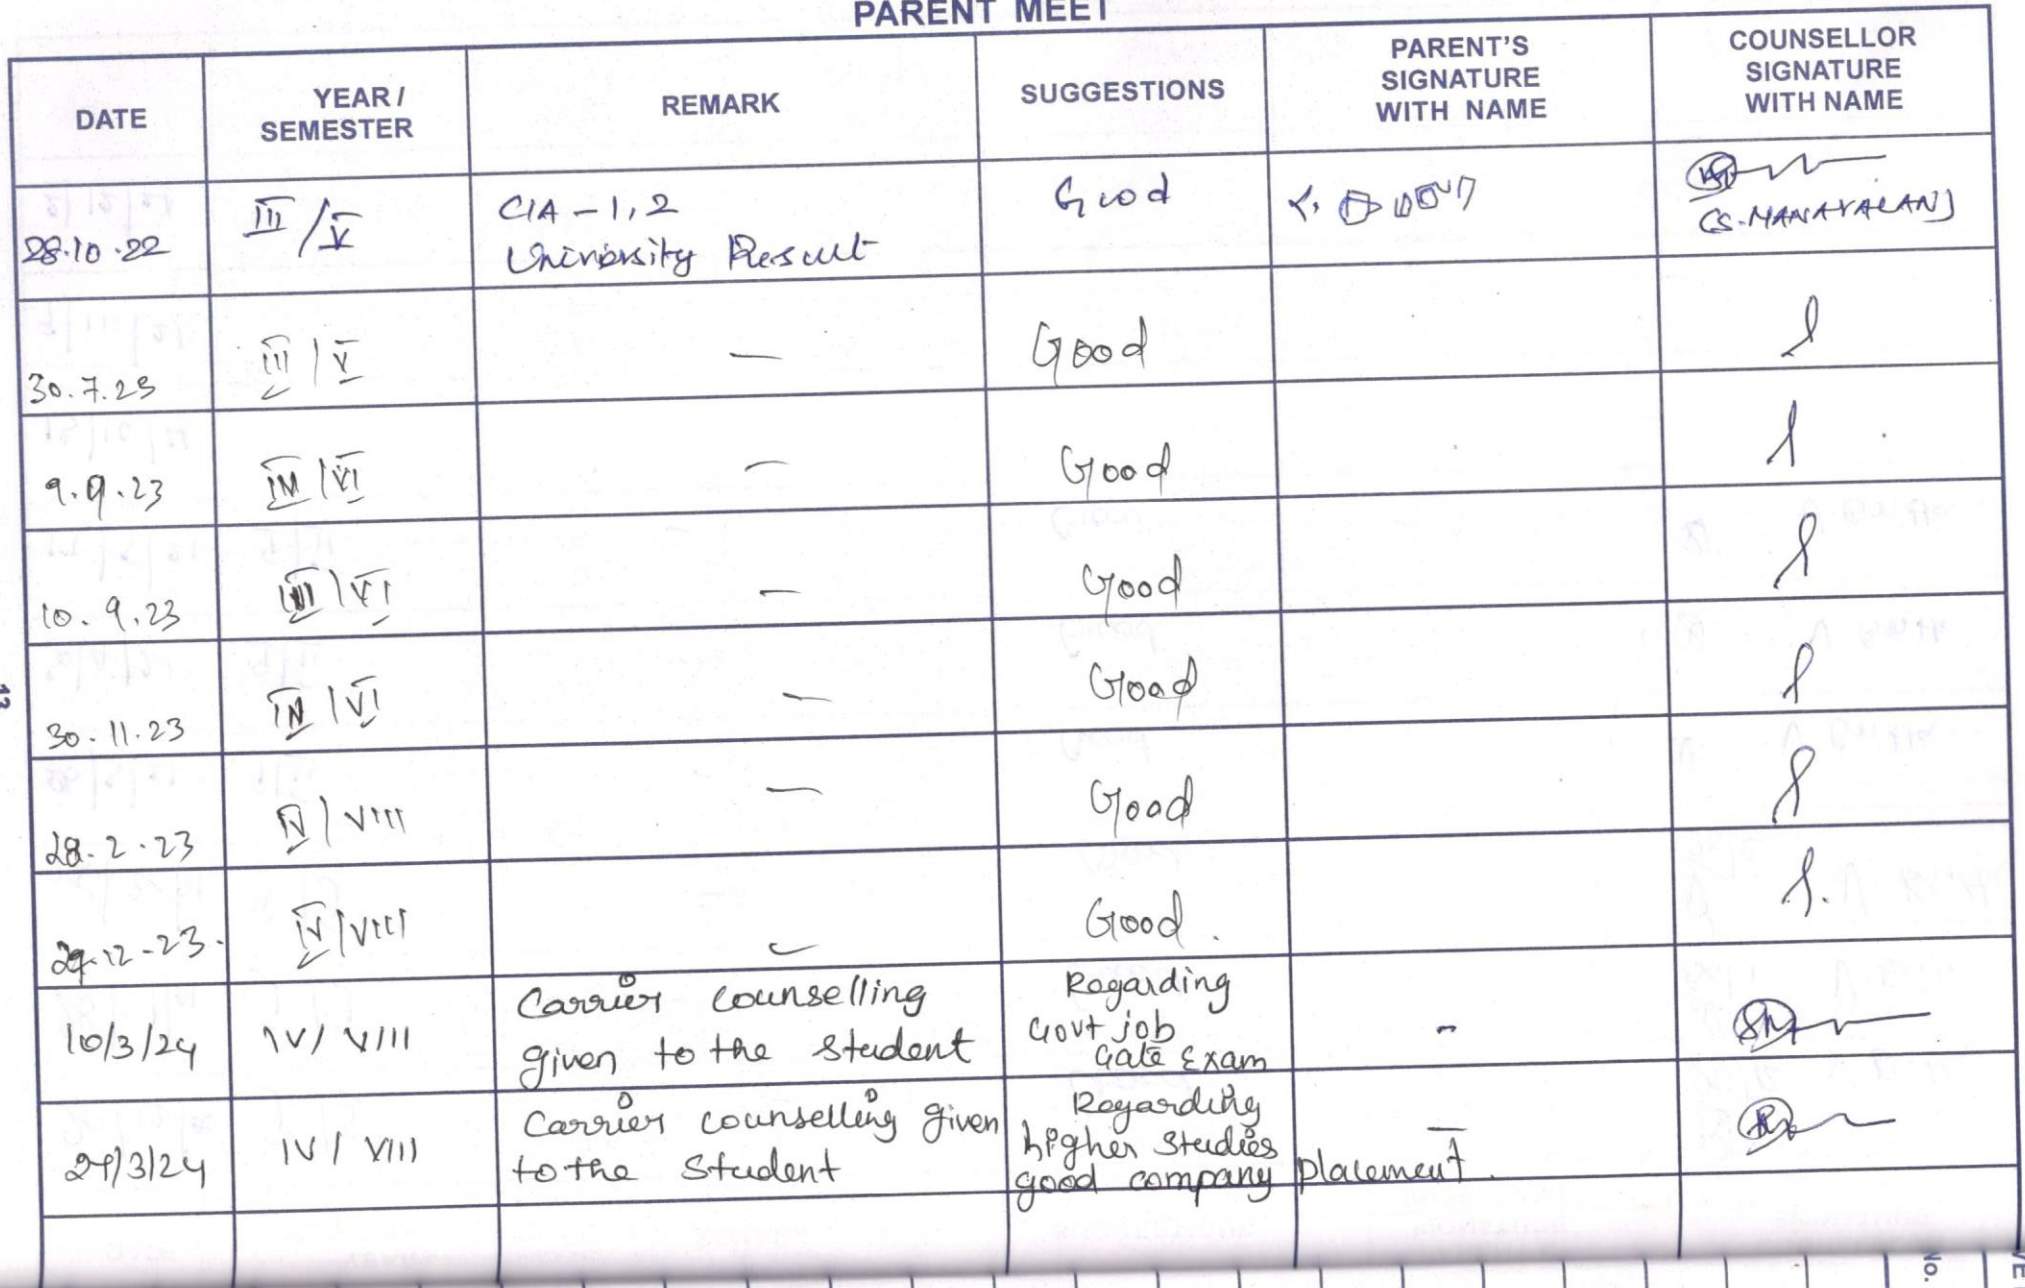 PARENT MEET
DATE
YEAR /
SEMESTER
REMARK
SUGGESTIONS
PARENT'S
SIGNATURE
WITH NAME
COUNSELLOR
SIGNATURE
WITH NAME
28.10.22
III / V
CIA - 1, 2
University Result
Good
(S. MANAVALAN)
30.7.23
III | V
—
Good
9.9.23
IV | VI
—
Good
10.9.23
III | VI
—
Good
30.11.23
IV | VI
—
Good
28.2.23
IV | VIII
—
Good
29.12.23.
IV | VIII
—
Good.
10/3/24
IV / VIII
Carrier counselling
given to the student
Regarding
Govt job
Gate Exam
-
IV / VIII
Carrier counselling given
to the student
Regarding
higher studies
good company placement.
—
13
No.